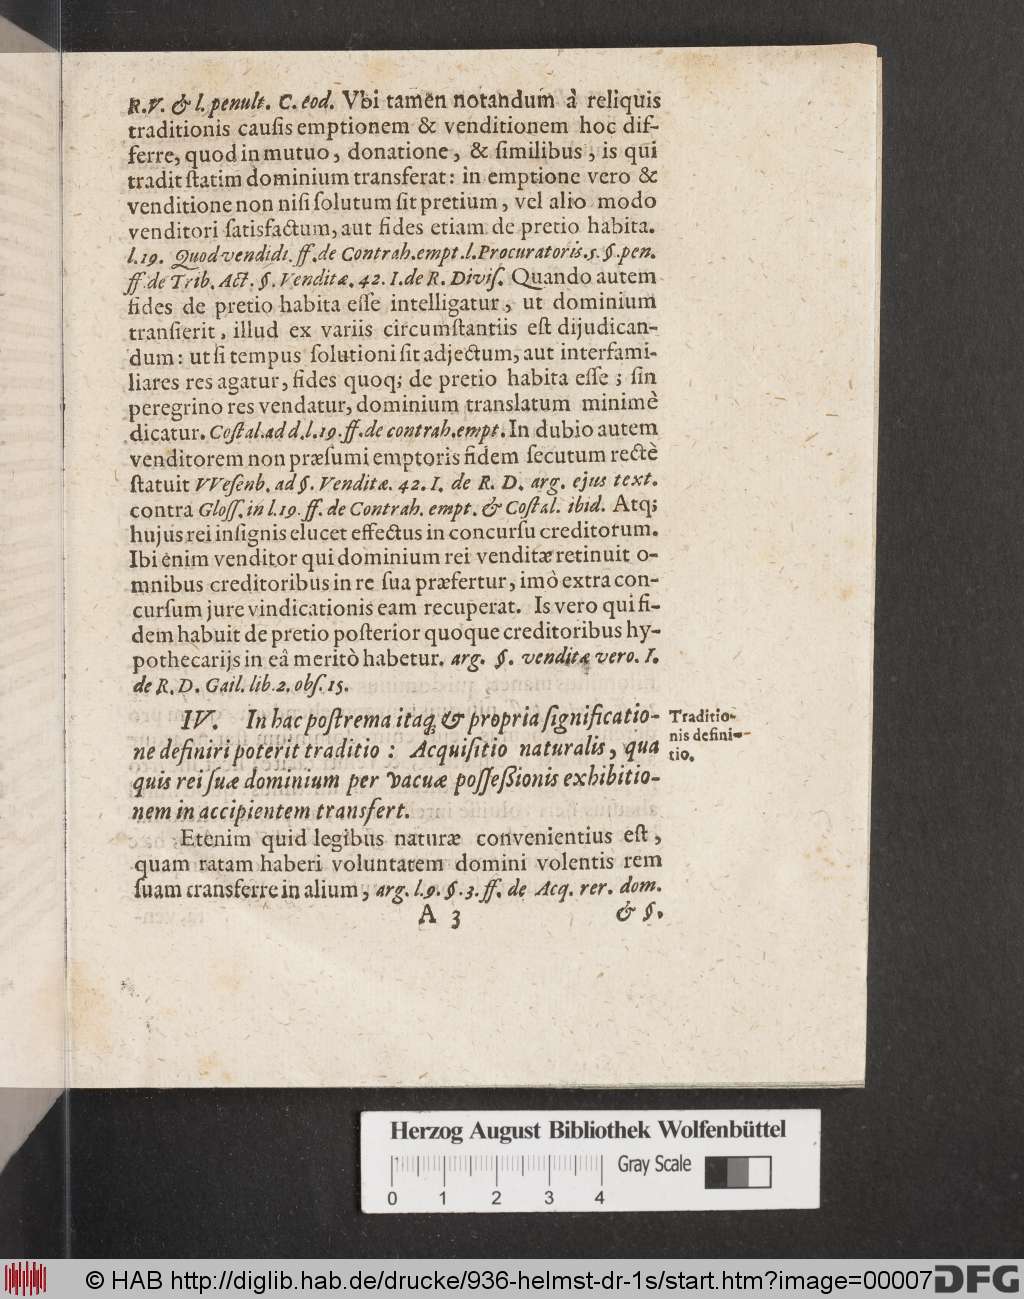 R.V. & l. penult. C. eod. Vbi tamen notandum à reliquis
traditionis cauſis emptionem & venditionem hoc dif-
ferre, quod in mutuo, donatione, & ſimilibus, is qui
tradit ſtatim dominium transferat: in emptione vero &
venditione non niſi ſolutum ſit pretium, vel alio modo
venditori ſatisfactum, aut fides etiam de pretio habita.
l. 19. Quod vendidi. ff. de Contrah. empt. l. Procuratoris. 5. §. pen.
ff. de Trib. Act. §. Venditæ. 42. I. de R. Diviſ. Quando autem
fides de pretio habita eſſe intelligatur, ut dominium
tranſierit, illud ex variis circumſtantiis eſt dijudican-
dum: ut ſi tempus ſolutioni ſit adjectum, aut interfami-
liares res agatur, fides quoq; de pretio habita eſſe; ſin
peregrino res vendatur, dominium translatum minimè
dicatur. Coſtal. ad d. l. 19. ff. de contrah. empt. In dubio autem
venditorem non præſumi emptoris fidem ſecutum rectè
ſtatuit VVeſenb. ad §. Venditæ. 42. I. de R. D. arg. ejus text.
contra Gloſſ. in l. 19. ff. de Contrah. empt. & Coſtal. ibid. Atq;
hujus rei inſignis elucet effectus in concurſu creditorum.
Ibi enim venditor qui dominium rei venditæ retinuit o-
mnibus creditoribus in re ſua præfertur, imò extra con-
curſum jure vindicationis eam recuperat. Is vero qui fi-
dem habuit de pretio poſterior quoque creditoribus hy-
pothecarijs in eâ meritò habetur. arg. §. venditæ vero. I.
de R. D. Gail. lib. 2. obſ. 15.
IV. In hac poſtrema itaq; & propria ſignificatio-
ne definiri poterit traditio: Acquiſitio naturalis, qua
quis rei ſuæ dominium per vacuæ poſſeßionis exhibitio-
nem in accipientem transfert.
Traditio-
nis defini-
tio.
Etenim quid legibus naturæ convenientius eſt,
quam ratam haberi voluntatem domini volentis rem
ſuam transferre in alium, arg. l. 9. §. 3. ff. de Acq. rer. dom.
A 3 & §.
Herzog August Bibliothek Wolfenbüttel
Gray Scale
0 1 2 3 4
© HAB http://diglib.hab.de/drucke/936-helmst-dr-1s/start.htm?image=00007
DFG